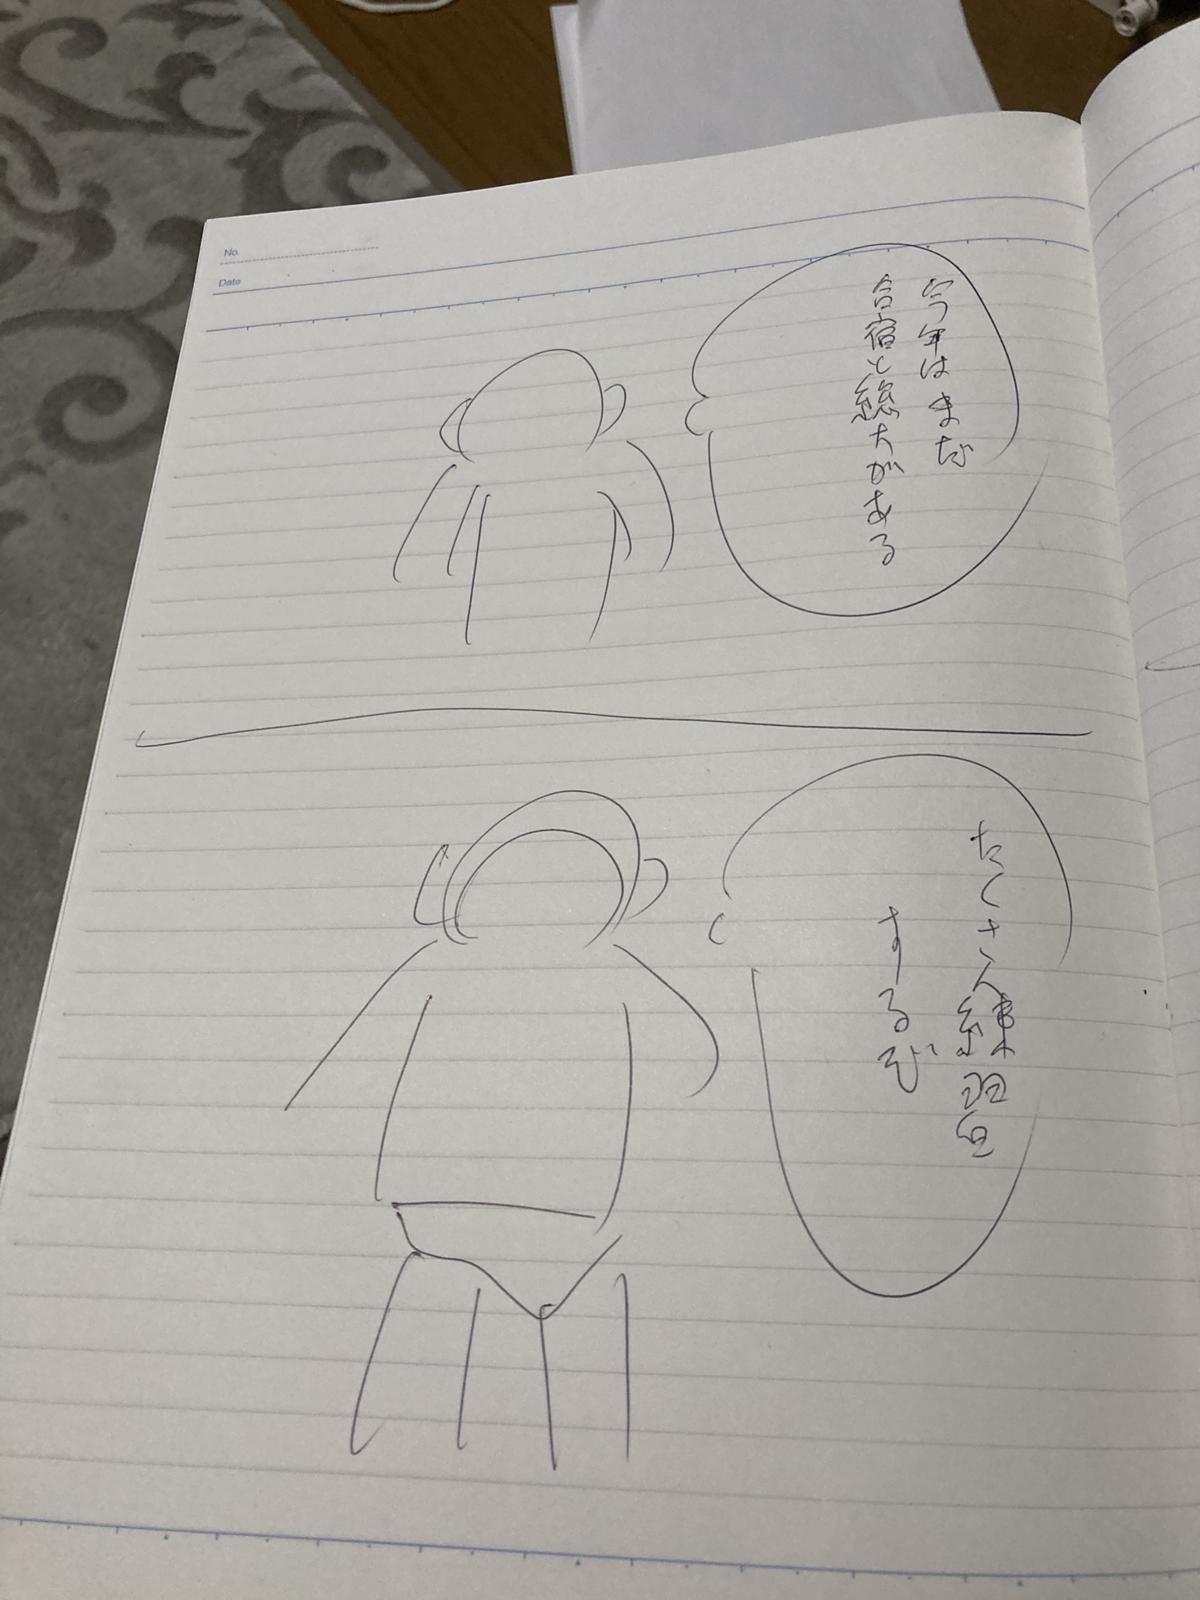 No.
Date
今年はまだ
合宿と総大がある
たくさん練習
するぞ